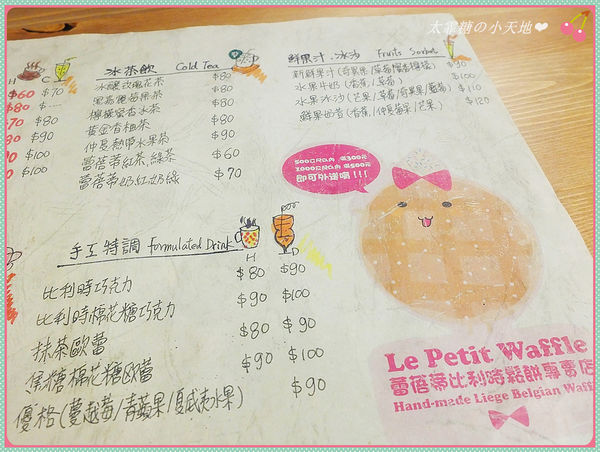 太軍糖の小天地❤
冰茶飲 Cold Tea
H C
$60 $70
$80 $---
$70 $80
$80 $90
$90 $100
$100
冰釀玫瑰花茶 $80
黑森種莓果茶 $80
檸檬蜜香冰茶 $80
黃金香柚茶 $80
仲夏熱帶水果茶 $90
蕾蓓蒂紅茶.綠茶 $60
蕾蓓蒂奶紅.奶綠 $70
鮮果汁.冰沙 Fruits Sorbet
新鮮果汁 $90
水果牛奶(香蕉/草莓) $100
水果冰沙(芒果/草莓/奇異果/藍莓) $110
鮮果奶昔(香蕉/仲夏莓果/芒果) $120
500公尺以內 滿300元
1000公尺以內 滿500元
即可外送喔!!!
手工特調 Formulated Drink
H D
比利時巧克力 $80 $90
比利時棉花糖巧克力 $90 $100
抹茶歐蕾 $80 $90
焦糖棉花糖歐蕾 $90 $100
優格(蔓越莓/青蘋果/夏威夷水果) $90
Le Petit Waffle
蕾蓓蒂比利時鬆餅專賣店
Hand-made Liege Belgian Waff